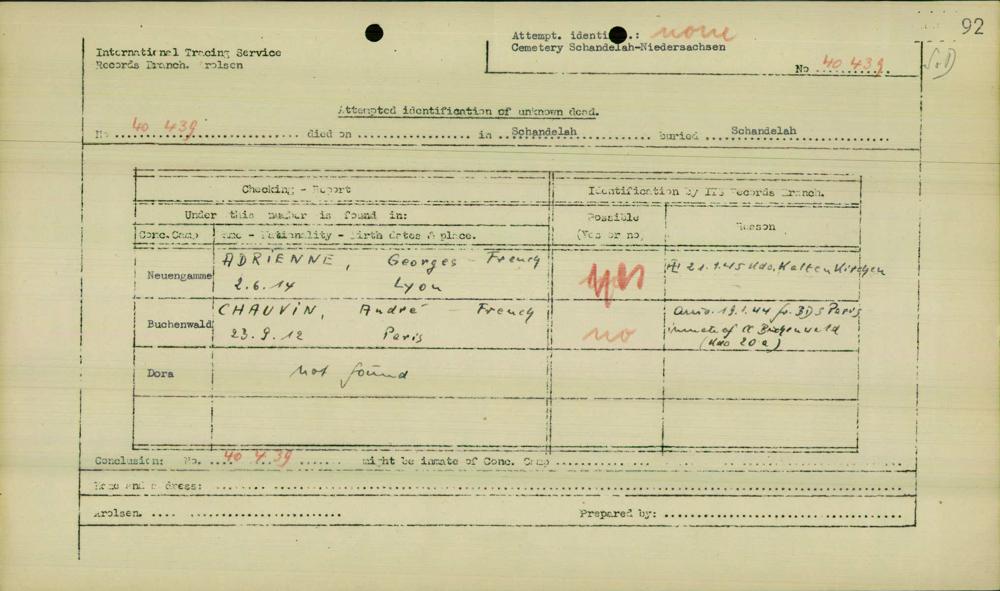 92
Attempt. identif.: none
Cemetery Schandelah-Niedersachsen
No 40 439
International Tracing Service
Records Branch. Arolsen
Attempted identification of unknown dead.
No 40 439 died on in Schandelah buried Schandelah
Checking - Report
Identification by ITS Records Branch.
Under this number is found in:
Possible
(Yes or no)
Reason
Conc.Camp Name - Nationality - Birth dates & place.
Neuengamme ADRIENNE, Georges - French
2.6.14 Lyon
yes
21.1.45 Kdo. Kaltenkirchen
Buchenwald CHAUVIN, André French
23.9.12 Paris
no
19.1.44 Paris
inmate of
(Kdo 20a)
Dora not found
Conclusion: No. 40 439 might be inmate of Conc. Camp
Name and address:
Arolsen.
Prepared by: